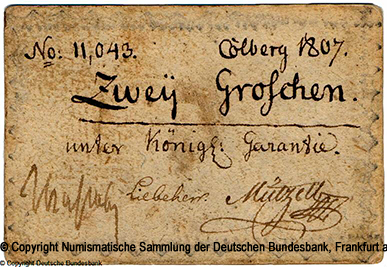 No: 11,043. Colberg 1807.
Zweÿ Groschen.
unter Königl: Garantie.
Liebeherr. Mützell
© Copyright Numismatische Sammlung der Deutschen Bundesbank, Frankfurt a
© Copyright Deutsche Bundesbank